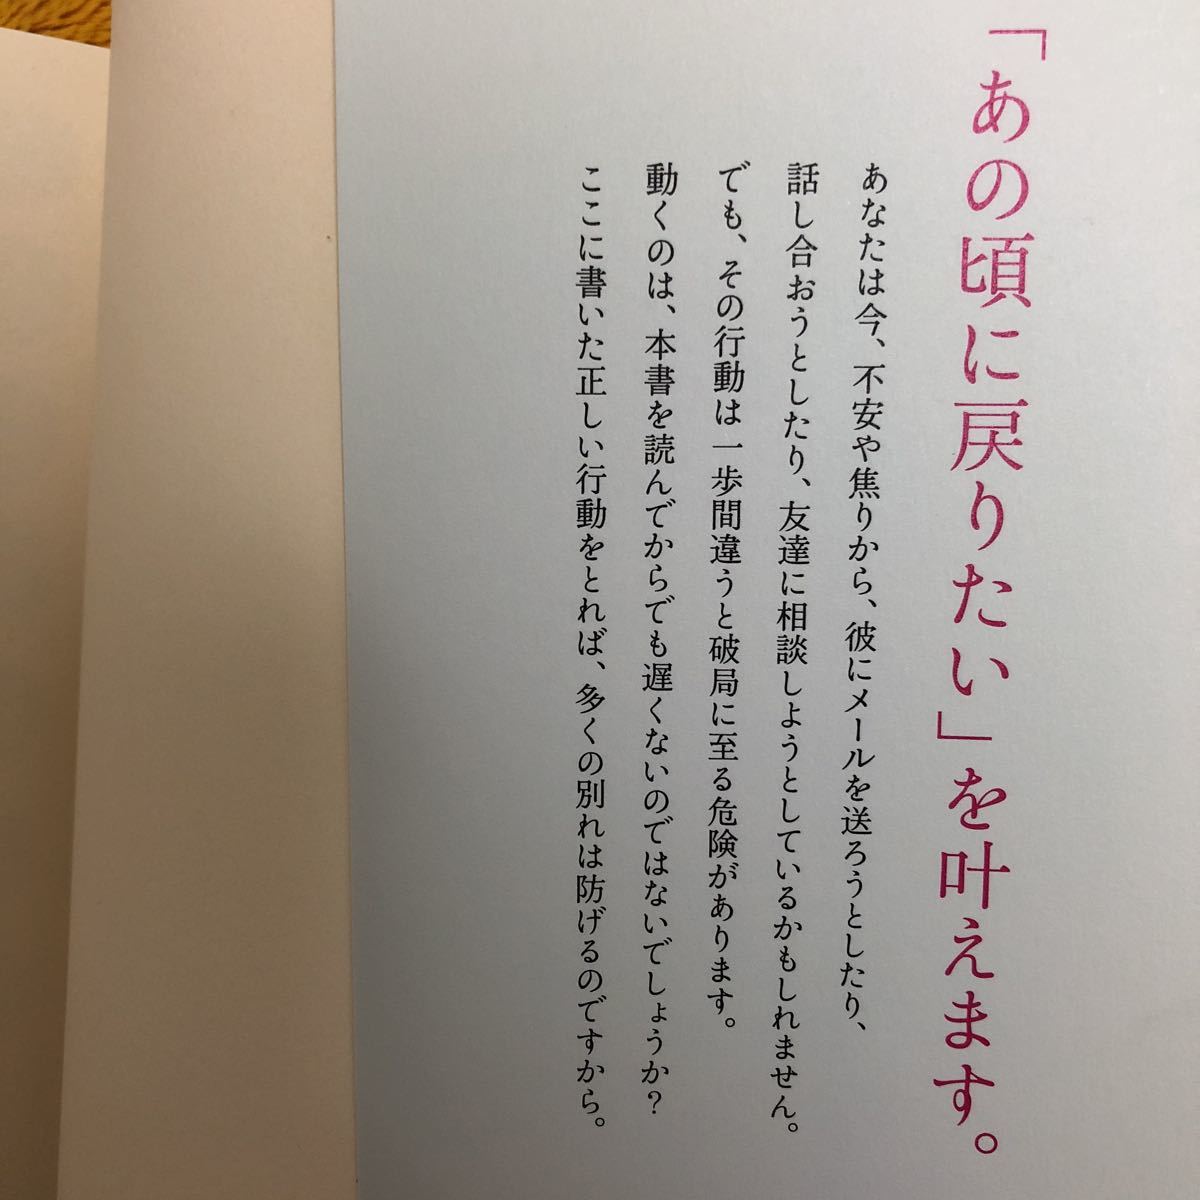 「あの頃に戻りたい」を叶えます。
あなたは今、不安や焦りから、彼にメールを送ろうとしたり、
話し合おうとしたり、友達に相談しようとしているかもしれません。
でも、その行動は一歩間違うと破局に至る危険があります。
動くのは、本書を読んでからでも遅くないのではないでしょうか？
ここに書いた正しい行動をとれば、多くの別れは防げるのですから。